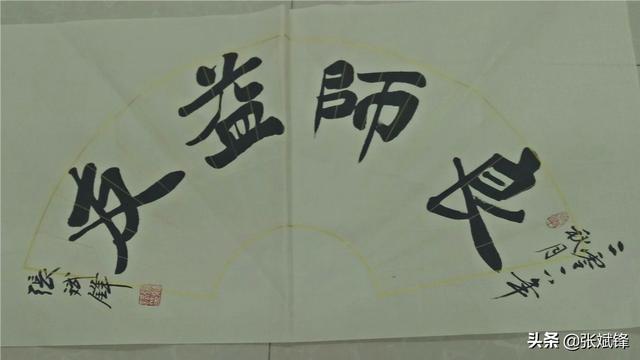 二零一八年
秋月
良師益友
張斌鋒
头条 @张斌锋